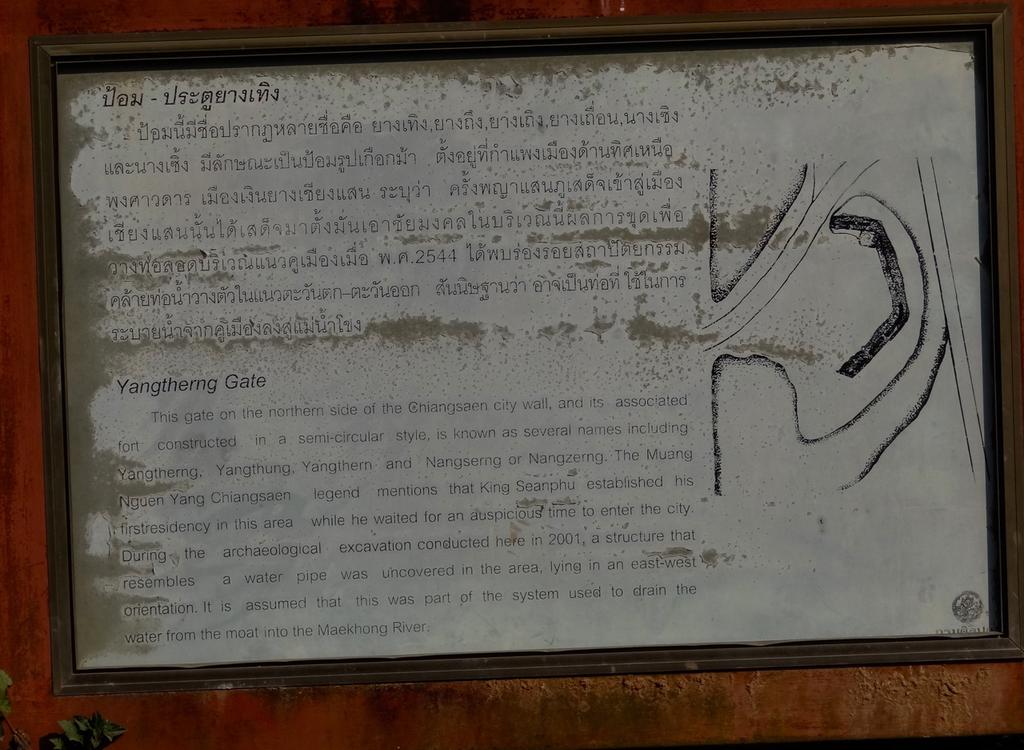 ป้อม - ประตูยางเทิง
ป้อมนี้มีชื่อปรากฏหลายชื่อคือ ยางเทิง,ยางถึง,ยางเถิง,ยางเถื่อน,นางเซิง
และนางเซิ้ง มีลักษณะเป็นป้อมรูปเกือกม้า ตั้งอยู่ที่กำแพงเมืองด้านทิศเหนือ
พงศาวดาร เมืองเงินยางเชียงแสน ระบุว่า ครั้งพญาแสนภูเสด็จเข้าสู่เมือง
เชียงแสนนั้นได้เสด็จมาตั้งมั่นเอาชัยมงคลในบริเวณนี้ผลการขุดเพื่อ
วางท่อลอดบริเวณแนวคูเมืองเมื่อ พ.ศ.2544 ได้พบร่องรอยสถาปัตยกรรม
คล้ายท่อน้ำวางตัวในแนวตะวันตก-ตะวันออก สันนิษฐานว่า อาจเป็นท่อที่ ใช้ในการ
ระบายน้ำจากคูเมืองลงสู่แม่น้ำโขง
Yangtherng Gate
This gate on the northern side of the Chiangsaen city wall, and its associated
fort constructed in a semi-circular style, is known as several names including
Yangtherng, Yangthung, Yangthern and Nangserng or Nangzerng. The Muang
Nguen Yang Chiangsaen legend mentions that King Seanphu established his
firstresidency in this area while he waited for an auspicious time to enter the city.
During the archaeological excavation conducted here in 2001, a structure that
resembles a water pipe was uncovered in the area, lying in an east-west
orientation. It is assumed that this was part of the system used to drain the
water from the moat into the Maekhong River.